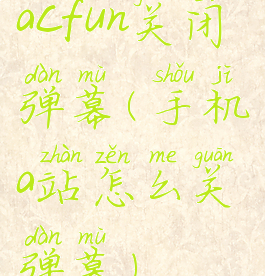 acfun关闭
dàn mù shǒu jī
弹幕(手机
zhàn zěn me guān
a站怎么关
dàn mù
弹幕)